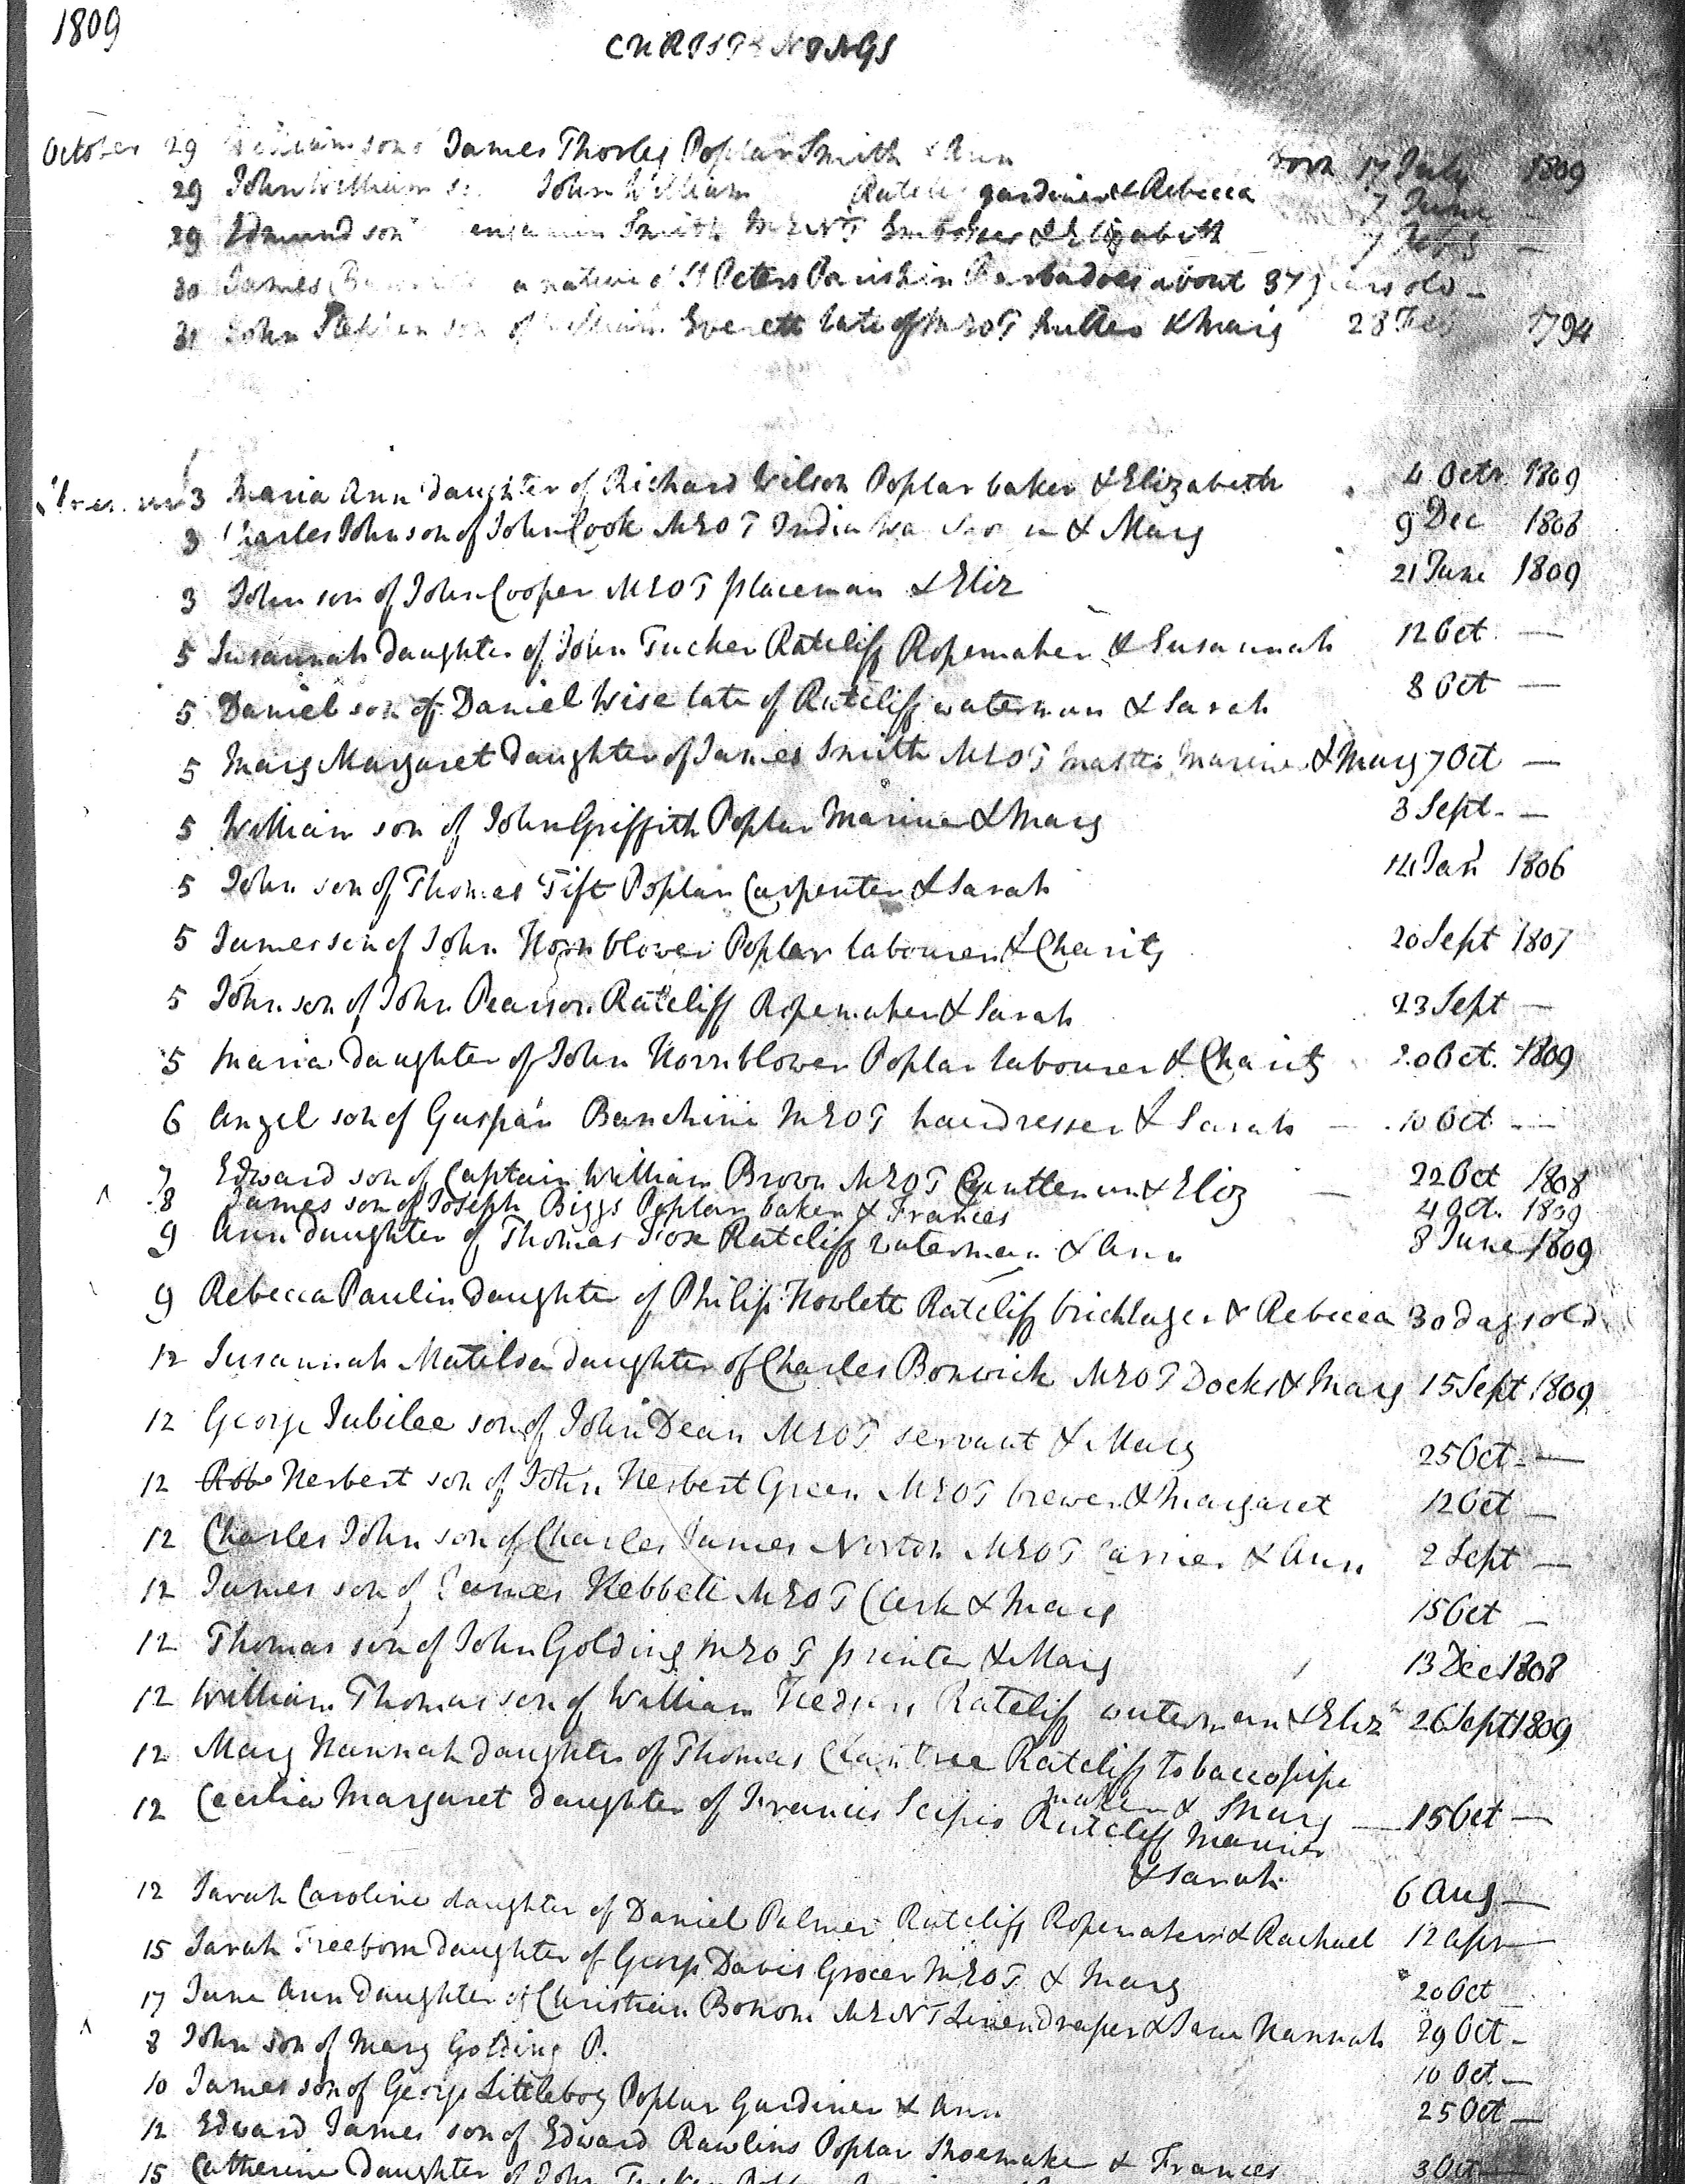 1809
CHRISTNINGS
October 29 William son James Thorley Poplar Smith & Ann born 17 July 1809
29 John William John William gardiner & Rebecca 7 June —
29 Edmund son Smith MENT & Elizabeth 7
30 James a native of St Peters Parish in Barbadoes about 37 years old —
31 John son of William Everett late of MEOT & Mary 28 Feb 1794
3 Maria Ann daughter of Richard Wilson Poplar baker & Elizabeth 4 Octr 1809
3 Charles John son of John Cook MEOT India & Mary 9 Dec 1808
3 John son of John Cooper MEOT placeman & Eliz 21 June 1809
5 Susannah daughter of John Tucker Ratcliff Ropemaker & Susannah 12 Oct —
5 Daniel son of Daniel Wise late of Ratcliff waterman & Sarah 8 Oct —
5 Mary Margaret daughter of James Smith MEOT Master Mariner & Mary 7 Oct —
5 William son of John Griffith Poplar Mariner & Mary 3 Sept. —
5 John son of Thomas Tift Poplar Carpenter & Sarah 14 Jan 1806
5 James son of John Hornblower Poplar labourer & Charity 20 Sept 1807
5 John son of John Pearson Ratcliff Ropemaker & Sarah 23 Sept —
5 Maria daughter of John Hornblower Poplar labourer & Charity 20 Oct. 1809
6 Angel son of Gaspar Banchini MEOT hairdresser & Sarah — 10 Oct —
7 Edward son of Captain William Brown MEOT Gentleman & Eliz — 22 Oct 1808
8 James son of Joseph Biggs Poplar baker & Frances 4 Oct. 1809
9 Ann daughter of Thomas Fox Ratcliff waterman & Ann 8 June 1809
9 Rebecca Paulin daughter of Philip Howlett Ratcliff bricklayer & Rebecca 30 days old
12 Susannah Matilda daughter of Charles Bonwick MEOT Docks & Mary 15 Sept 1809
12 George Jubilee son of John Dean MEOT servant & Mary 25 Oct —
12 Rob Herbert son of John Herbert Green MEOT brewer & Margaret 12 Oct —
12 Charles John son of Charles James Norton MEOT Carrier & Ann 2 Sept —
12 James son of James Hebbell MEOT Clerk & Mary 15 Oct —
12 Thomas son of John Golding MEOT printer & Mary 13 Dec 1808
12 William Thomas son of William Ratcliff waterman & Eliz 26 Sept 1809
12 Mary Hannah daughter of Thomas Ratcliff tobaccopipe
maker & Mary — 15 Oct —
12 Cecilia Margaret daughter of Francis Scipio Ratcliff Mariner
& Sarah 6 Aug —
12 Sarah Caroline daughter of Daniel Palmer Ratcliff Ropemaker & Rachael 12 Apr —
15 Sarah Freeborn daughter of George Davis Grocer MEOT & Mary 20 Oct —
17 Jane Ann daughter of Christian Bonom MENT Linendraper & Jane Hannah 29 Oct —
8 John son of Mary Golding P. 10 Oct —
10 James son of George Littleboy Poplar Gardiner & Ann 25 Oct —
12 Edward James son of Edward Rawlins Poplar Shoemaker & Frances 3 Oct —
15 Catherine daughter of John Tucker